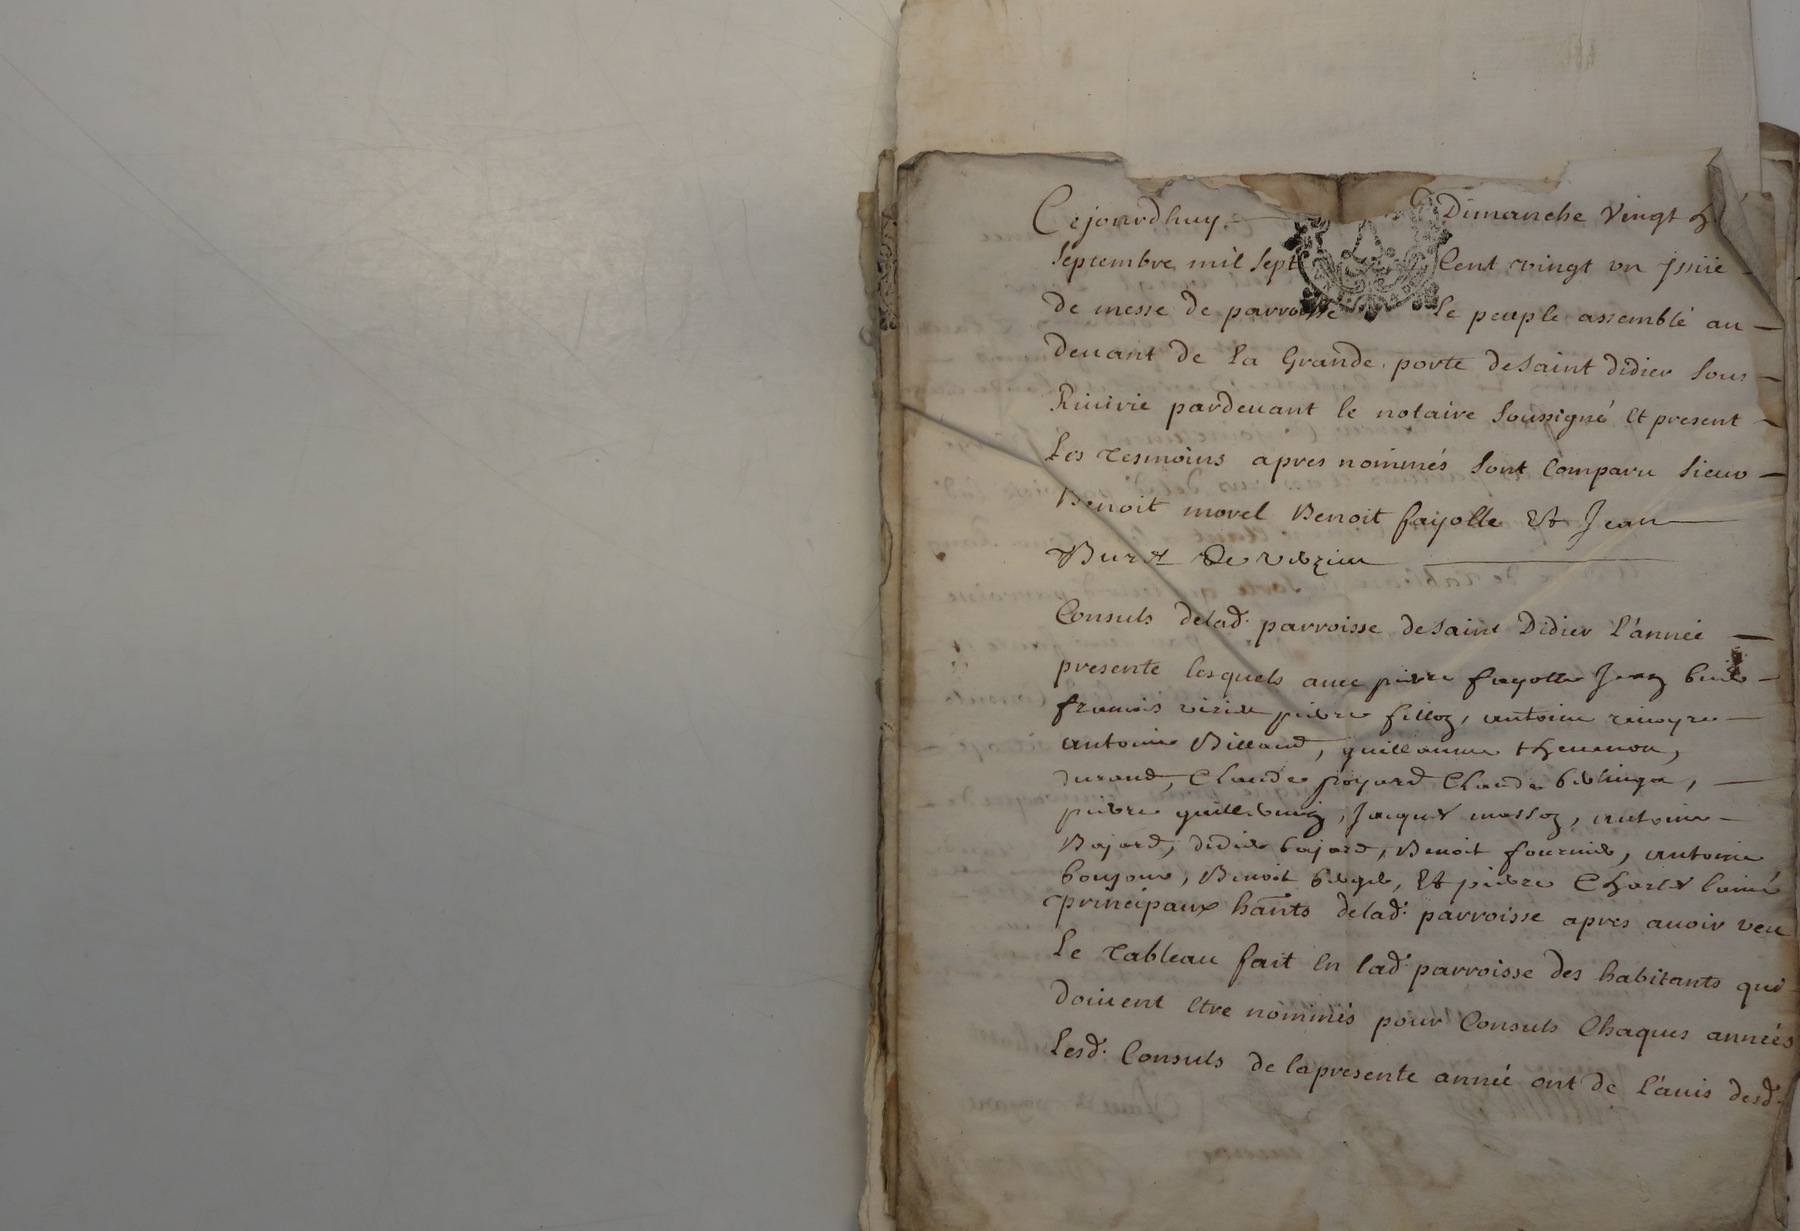 Cejourdhuy Dimanche vingt
Septembre mil sept Cent vingt un jssüe
de messe de parroisse le peuple assemblé au
deuant de la Grande porte de Saint Didier sous
Riuirie pardeuant le notaire soussigné et present
les tesmoins apres nommés sont Comparu sieur
Benoit morel Benoit fayolle Et Jean
De
Consuls delad. parroisse de Saint Didier l'année
presente lesquels auec pierre fayolle Jean
francois pierre antoine
antoine Billaud, guillaume theuenon,
durand, Claude poyard Claude
pierre Jacques antoine
Bajard, didier bajard, Benoit fournier, antoine
Benoit Et pierre Charles
principaux hãnts delad. parroisse apres auoir veu
le tableau fait en lad. parroisse des habitants qui
doiuent etre nommés pour Consuls Chaques années
lesd. Consuls de la presente année ont de l'auis desd.